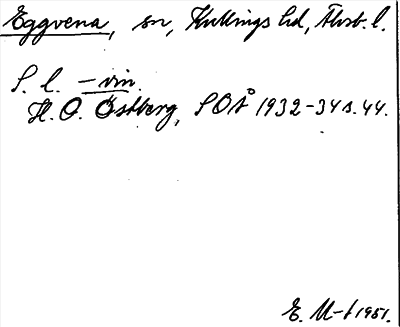 Eggvena, sn, Kullings hd, Älvsb. l.
S. l. – vin.
H. O. Östberg, SOÅ 1932-34 s. 44.
E. M-t 1951.